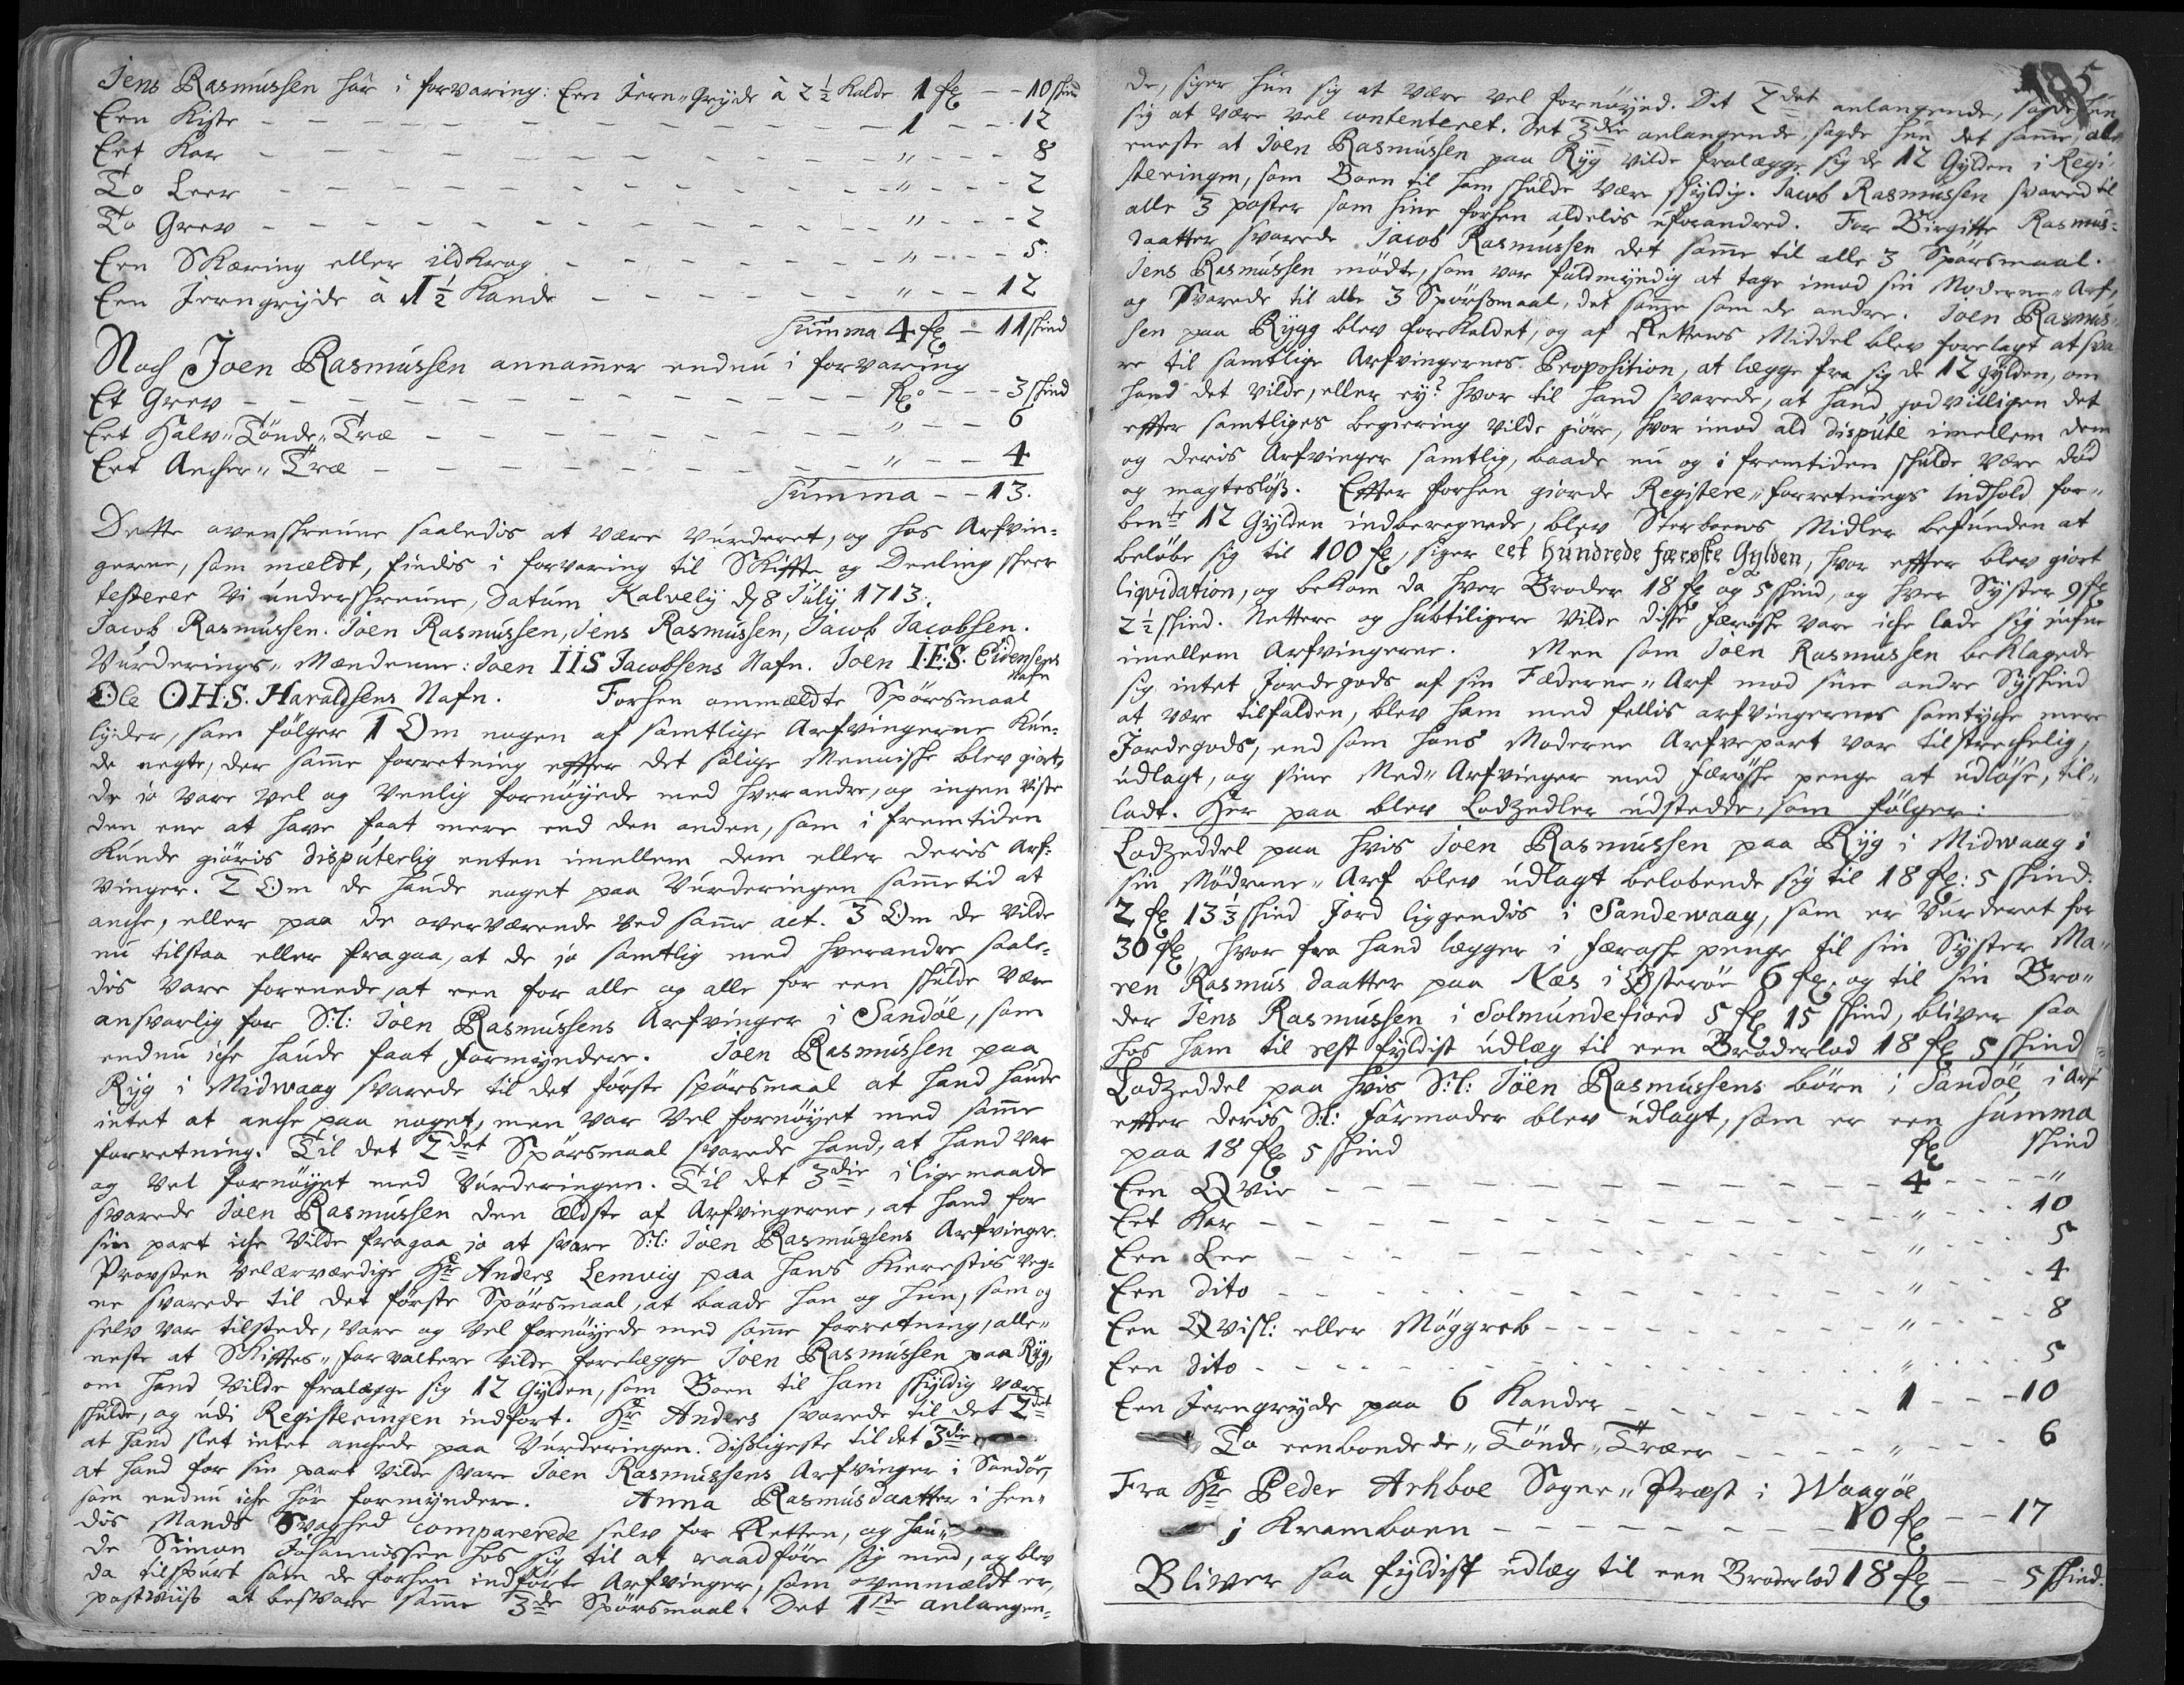 Jens Rasmussen har i forvaring: Een Jern„Gryde à 2½ Kalde 1 fl - - 10 skind
Een Kiste - - - 1 - - - 12
Eet Kar - - - „ - - - 8
To Leer - - - „ - - - 2
To Grev - - - „ - - - 2
Een Skæring eller ildkrog - - - „ - - - 5.
Een Jerngryde à 1½ Kande - - - „ - - 12
Summa 4 fl - 11 skind
Noch Joen Rasmussen annammer endnu i forvaring
Et Grev - - - - - 3 skind
Eet Halv„Tönde„Træ - - - „ - - 6
Eet Ancher„Træ - - - „ - - 4
Summa - - 13.
Dette ovenskrevne saaledis at være Vurderet, og hos Arfvin-
gerne, som mældt, findis i forvaring til Skiffte og Deeling skeer
testerer Vi underskrevne, Datum Kalvelÿ d 8 Julÿ 1713.
Jacob Rasmussen. Joen Rasmussen, Jens Rasmussen, Jacob Jacobsen.
Vurderings„Mændenne: Joen IIS Jacobsens Nafn. Joen I.E.S. Eidensens
Nafn
Ole OH.S. Haraldsens Nafn. Forhen ommældte Spörsmaal
lyder, som fölger 1 Om nogen af samtlige Arfvingerne kun-
de negte, der samme forretning effter det salige Menniske blev giort,
de jo vare vel og venlig fornöyede med hverandre, og ingen viste
den ene at have faat mere end den anden, som i fremtiden
kunde giöris disputerlig enten imellem dem eller deris Arf-
vinger. 2 Om de hafde noget paa Vurderingen samme tid at
anche, eller paa de overværende ved samme act. 3 Om de vilde
nu tilstaa eller fragaa, at de jo samtlig med hverandre saale-
dis vare forenede, at een for alle og alle for een skulde være
ansvarlig for S:l: Joen Rasmussens Arfvinger i Sandöe, som
endnu iche hafde faat formyndere. Joen Rasmussen paa
Ryg i Midwaag svarede til det förste spörsmaal at hand hafde
intet at anche paa noget, men var vel fornöyet med samme
forretning. Til det 2det Spörsmaal svarede hand, at hand var
og vel fornöyet med Vurderingen. Til det 3die i lige maade
svarede Joen Rasmussen den ældste af Arfvingerne, at hand for
sin part iche vilde fragaa jo at svare S:l: Joen Rasmussens Arfvinger.
Provsten Velærværdige Hr Anders Lemvig paa hans Kierestis veg-
ne svarede til det förste Spörsmaal, at baade han og hun, som og
selv var tilstede, vare og vel fornöyede med samme forretning, alle-
neste at Skifftes„forvaltere vilde forelægge Joen Rasmussen paa Ryg,
om hand vilde fralægge sig 12 Gylden, som Boen til ham skyldig være
skulde, og udi Registeringen indfört. Hr Anders svarede til det 2det
at hand slet intet anchede paa Vurderingen. Disligeste til det 3die
at hand for sin part vilde svare Joen Rasmussens Arfvinger i Sandöe,
som endnu iche har formyndere. Anna Rasmusdaatter i hen-
dis Mands Svaghed comparerede selv for Retten, og haf-
de Simon Johannissen hos sig til at raadföre sig med, og blev
da tilspurt som de forhen indförte Arfvinger, som ovenmældt er,
postvuiis at besvare samme 3de Spörsmaal. Det 1ste anlangen-
185
de, siger hun sig at være vel fornöyed. Det 2det anlangende, sagde hun
sig at være vel contenteret. Det 3die anlangende, sagde hun det samme, al-
eneste at Joen Rasmussen paa Ryg vilde fralægge sig de 12 Gylden i Regi-
steringen, som Boen til ham skulde være skyldig. Jacob Rasmussen svared til
alle 3 poster som hine forhen aldelis uforandred. For Birgitte Rasmus-
daatter svarede Jacob Rasmussen det samme til alle 3 Spörsmaal.
Jens Rasmussen mödte, som var fuldmyndig at tage imod sin Moderne„Arf,
og svarede til alle 3 Spörsmaal, det samme som de andre. Joen Rasmus-
sen paa Rygg blev forekaldet, og af Rettens Middel blev forelagt at sva-
re til samtlige Arfvingernes Proposition, at lægge fra sig de 12 gylden, om
hand det vilde, eller ey? hvor til hand svarede, at hand godvilligen det
effter samtliges begiering vilde giöre, hvor imod ald dispute imellem dem
og deris Arfvinger samtlig, baade nu og i fremtiden skulde være död
og magteslöß. Effter forhen giorde Registere„forretnings indhold for-
bente 12 Gylden indberegnede, blev Sterboens Midler befunden at
belöbe sig til 100 fl, siger eet hundrede færøske Gylden, hvor effter blev giort
liqvidation, og bekom da hver Broder 18 fl og 5 skind, og hver Syster 9 fl
2½ skind. Nettere og subtiligere vilde disse færøske vare iche lade sig jefne
imellem Arfvingerne. Men som Joen Rasmussen beklagede
sig intet Jordegods af sin Fæderne„Arf mod sine andre Syskind
at være tilfalden, blev ham med fellis arfvingernes samtyche mere
Jordegods, end som hans Moderne Arfvepart var tilstrechelig,
udlagt, og sine Med„Arfvinger med færøske penge at udlöse, til-
ladt. Her paa blev Lodzedler udstedde, som fölger:
Lodzeddel paa hvis Joen Rasmussen paa Ryg i Midwaag i
sin Mödrene„Arf blev udlagt belobende sig til 18 fl: 5 skind.
2 fl 13⅓ skind Jord liggendis i Sandewaag, som er Vurderet for
30 fl, hvor fra hand lægger i færøske penge til sin Syster Ma-
ren Rasmus daatter paa Næs i Østeröe 6 fl. og til sin Bro-
der Jens Rasmussen i Solmundefiord 5 fl 15 skind, bliver saa
hos ham til rest fyldist udlæg til een Broderlod 18 fl 5 skind
Lodzeddel paa hvis S:l: Jöen Rasmussens börn i Sandöe i Arf
effter deris S:l: farmoder blev udlagt, som er een summa
paa 18 fl 5 skind fl skind
Een Qvie - - - 4 - - - „
Eet Kar - - - „ - - - 10
Een Lee - - - „ - - - 5
Een dito - - - „ - - - 4
Een Qvisl: eller Møggreb - - - „ - - - 8
Een dito - - - „ - - - 5
Een Jerngryde paa 6 Kander - - - 1 - - 10
To eenbondede„Tönde„Træer - - - „ - - - 6
Fra Hr Peder Arhboe Sogne„Præst i Waagöe
j Kramboen - - - 10 fl - - 17
Bliver saa fyldist udlæg til een Broderlod 18 fl - - 5 skind.